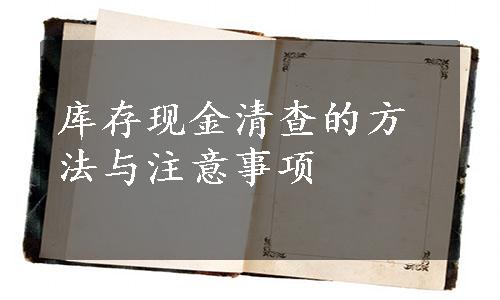 库存现金清查的方
法与注意事项